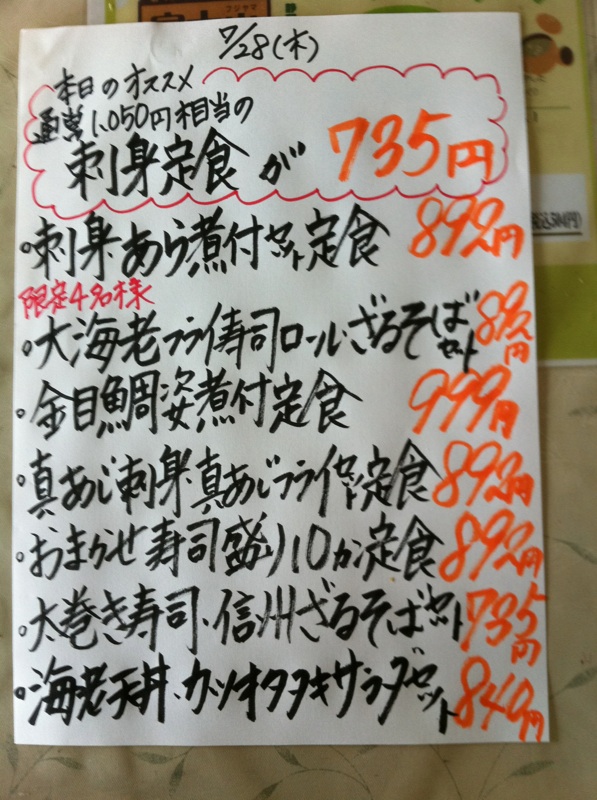 7/28(木)
本日のオススメ
通常1,050円相当の
刺身定食が 735円
・刺身・あら煮付セット定食 892円
限定4名様
・大海老フライ寿司ロール・ざるそばセット 892円
・金目鯛姿煮付定食 999円
・真あじ刺身・真あじフライセット定食 892円
・おまかせ寿司盛り10カン定食 892円
・太巻き寿司・信州ざるそばセット 735円
・海老天丼・カツオタタキサラダセット 840円